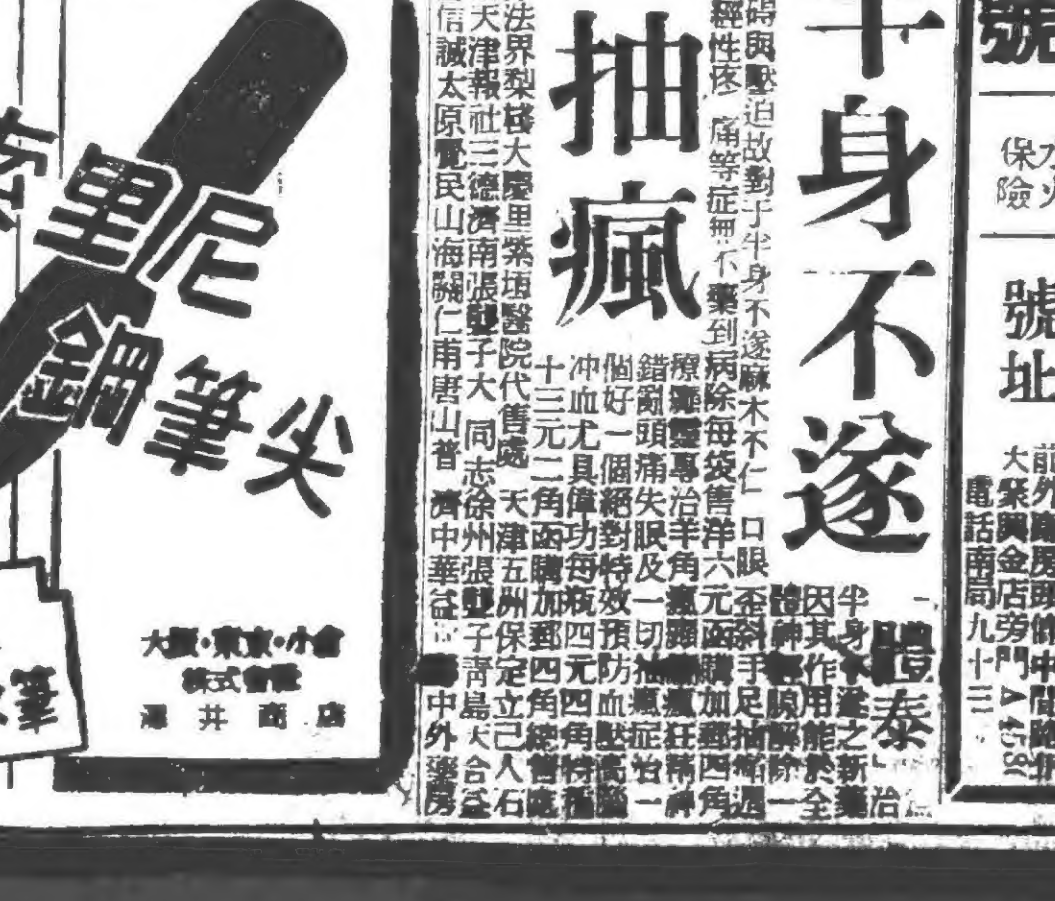 號
水火
保險
號址
前外 房頭 中間路北
大聚興金店旁門
電話南局九十三
半身不遂
體泰」治
半身不遂之新藥
因其作用能於全
體神經 解除一
碍與壓迫故對于半身不遂麻木不仁 口眼歪斜手足抽 週
經性疼 痛等症無不藥到病除每袋售洋六元函購加郵四角
抽瘋
療癲靈專治羊角瘋 瘋狂精神
錯亂頭痛失眠及一切抽瘋症治一
個好一個絕對特效預防血壓高腦
冲血尤具偉功每瓶四元四角特種
十三元二角函購加郵四角總售處
法界梨棧大慶里紫垣醫院代售處 天津五洲保定立己人石
天津報社三德濟南張雙子大 同志徐州張雙子青島大合益
信誠太原覺民山海關仁甫唐山普 濟中華益 中外藥房
里尼
鋼筆尖
大阪・東京・小倉
株式會社
澤井商店
筆